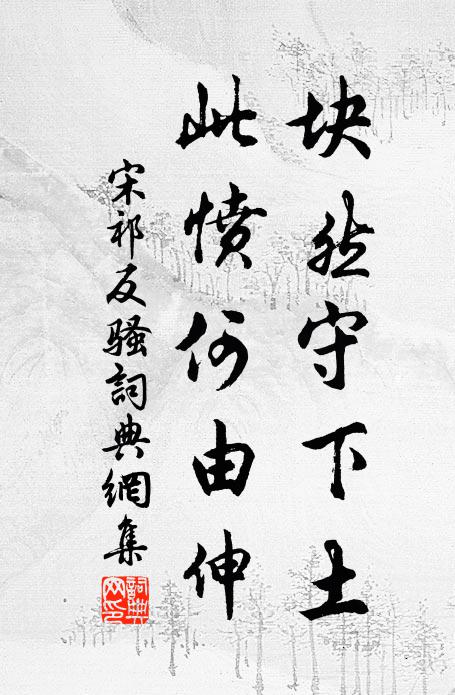 块然守下土
此愤何由伸
宋祁反骚詞典網集
詞典网印